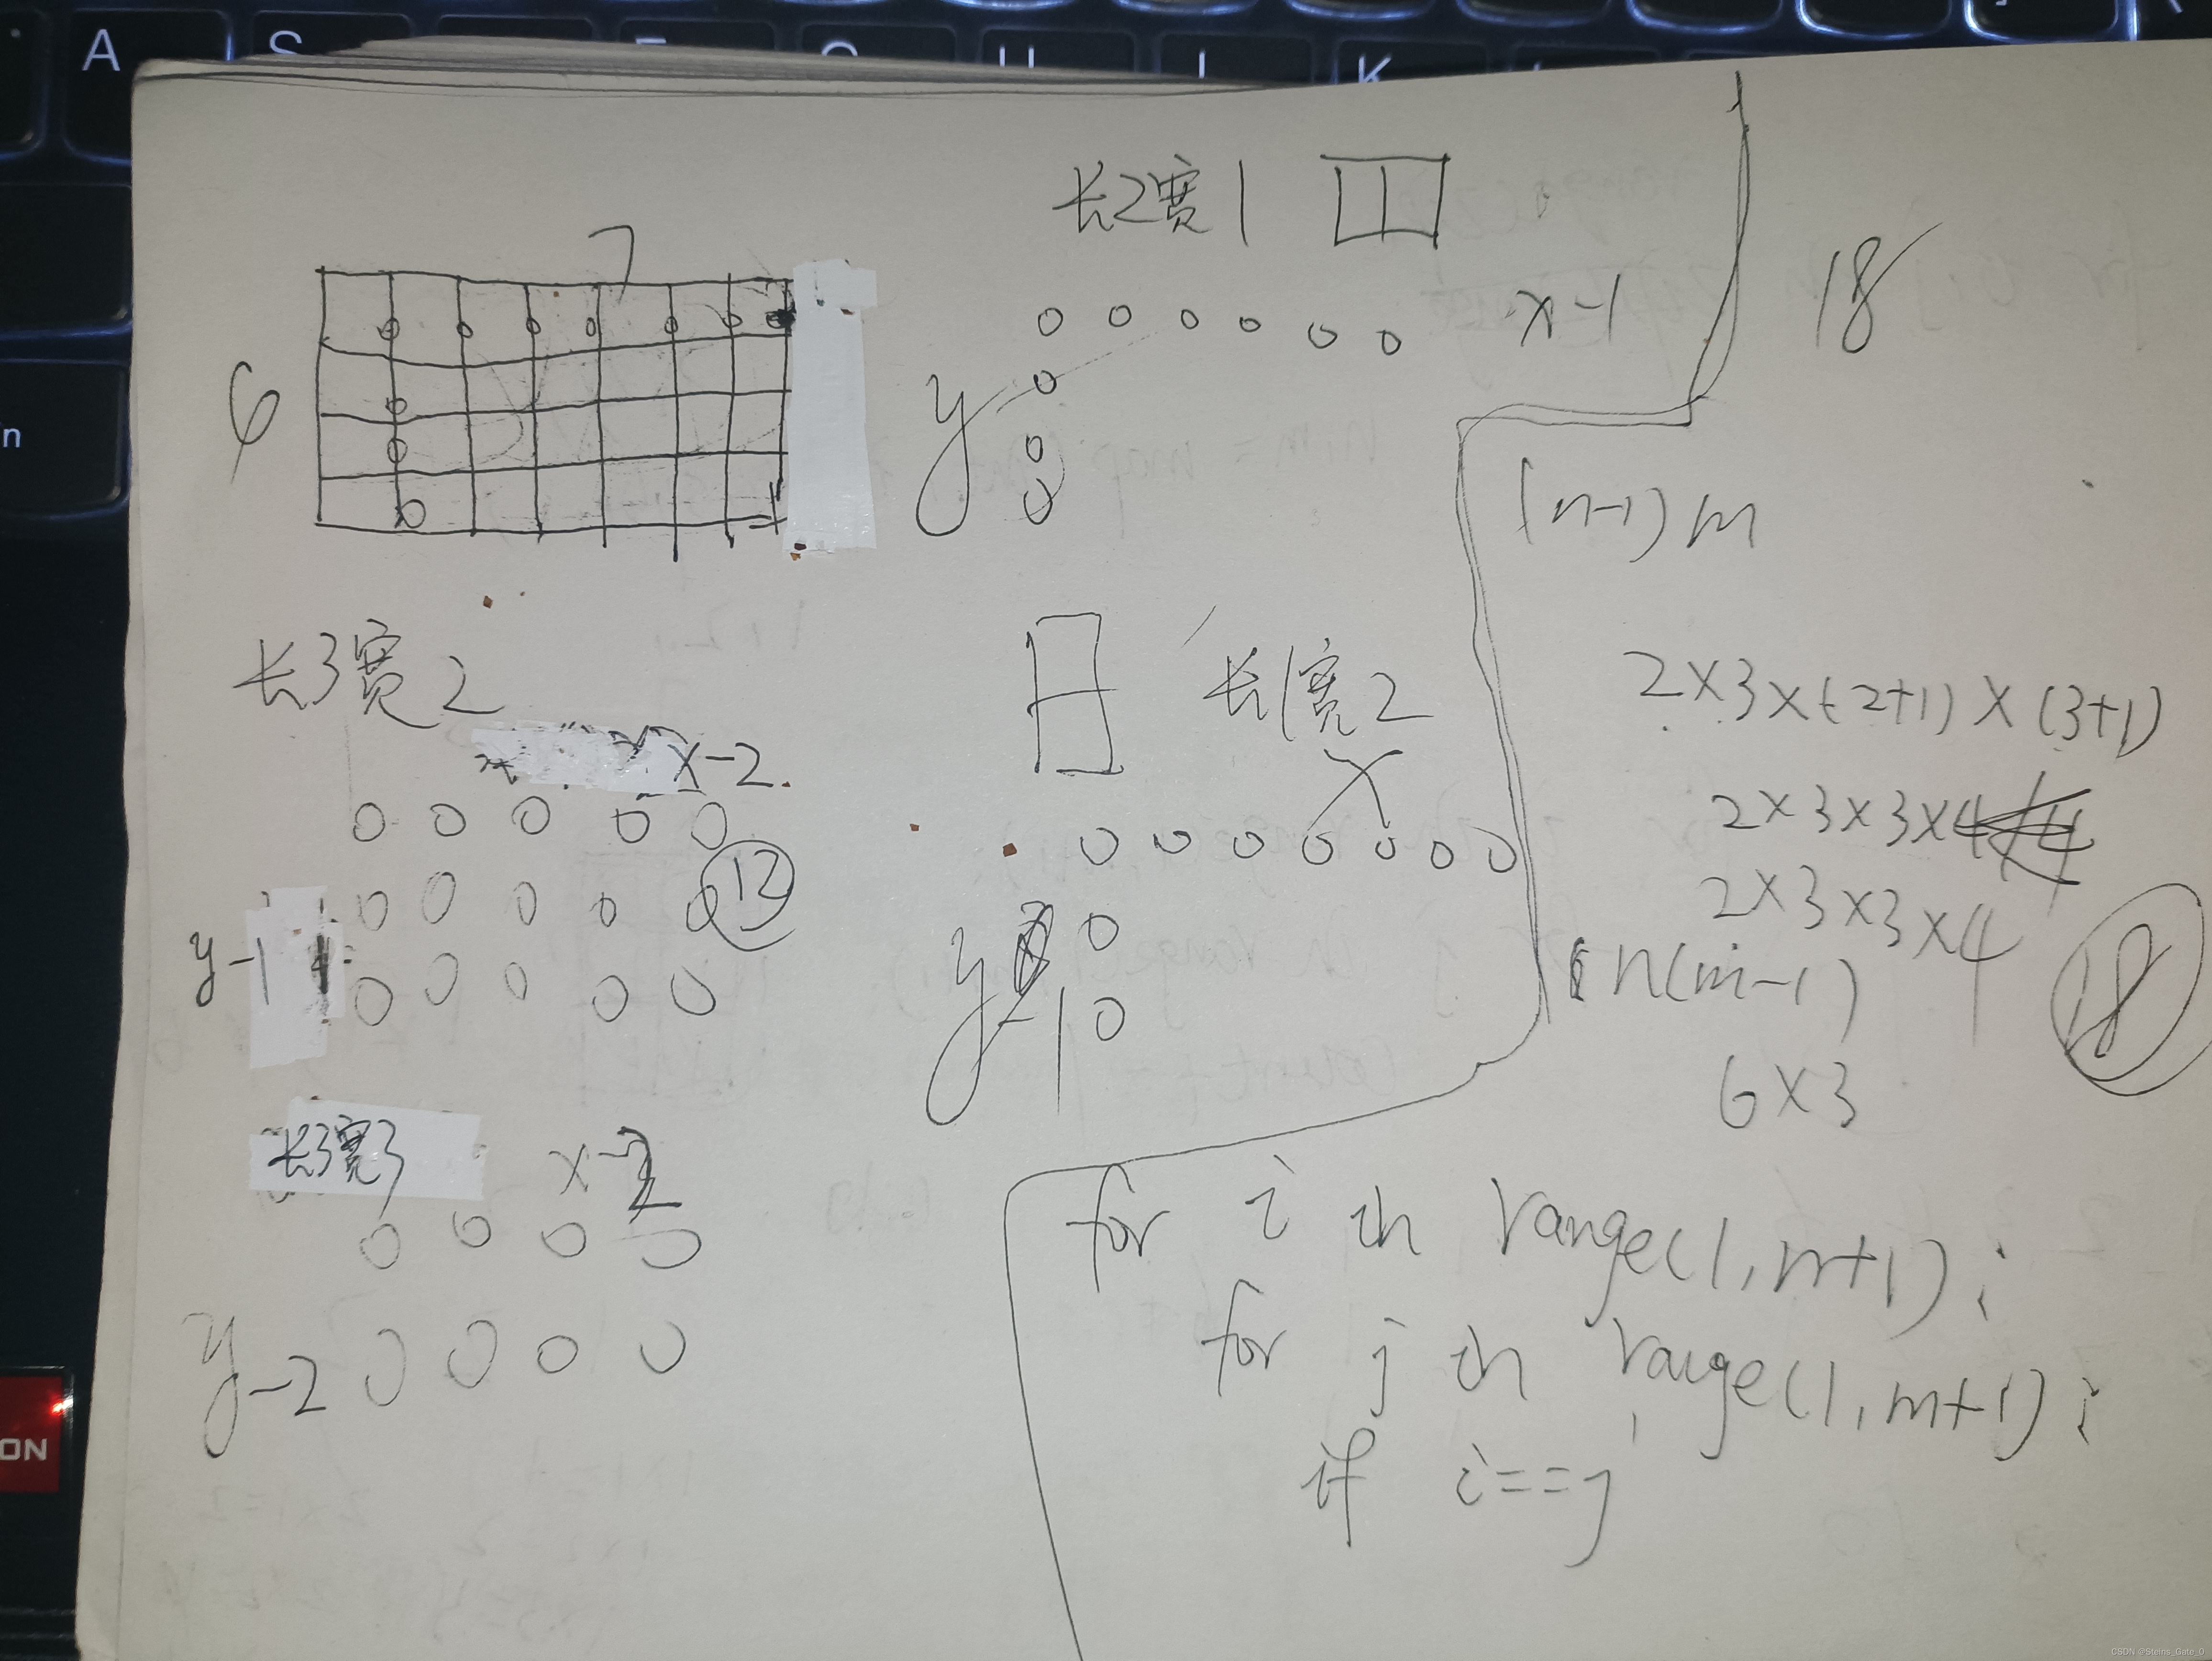 长2宽1
7
x-1
18
6
y
(n-1)m
长3宽2
长1宽2
2×3×(2+1)×(3+1)
x-2
x
2×3×3×4
12
2×3×3×4
y-1
y-1
n(m-1)
18
6×3
长3宽3
x-2
y-2
for i in range(1,n+1):
for j in range(1,m+1):
if i==j
A
K
n
ON
CSDN @Steins_Gate_0